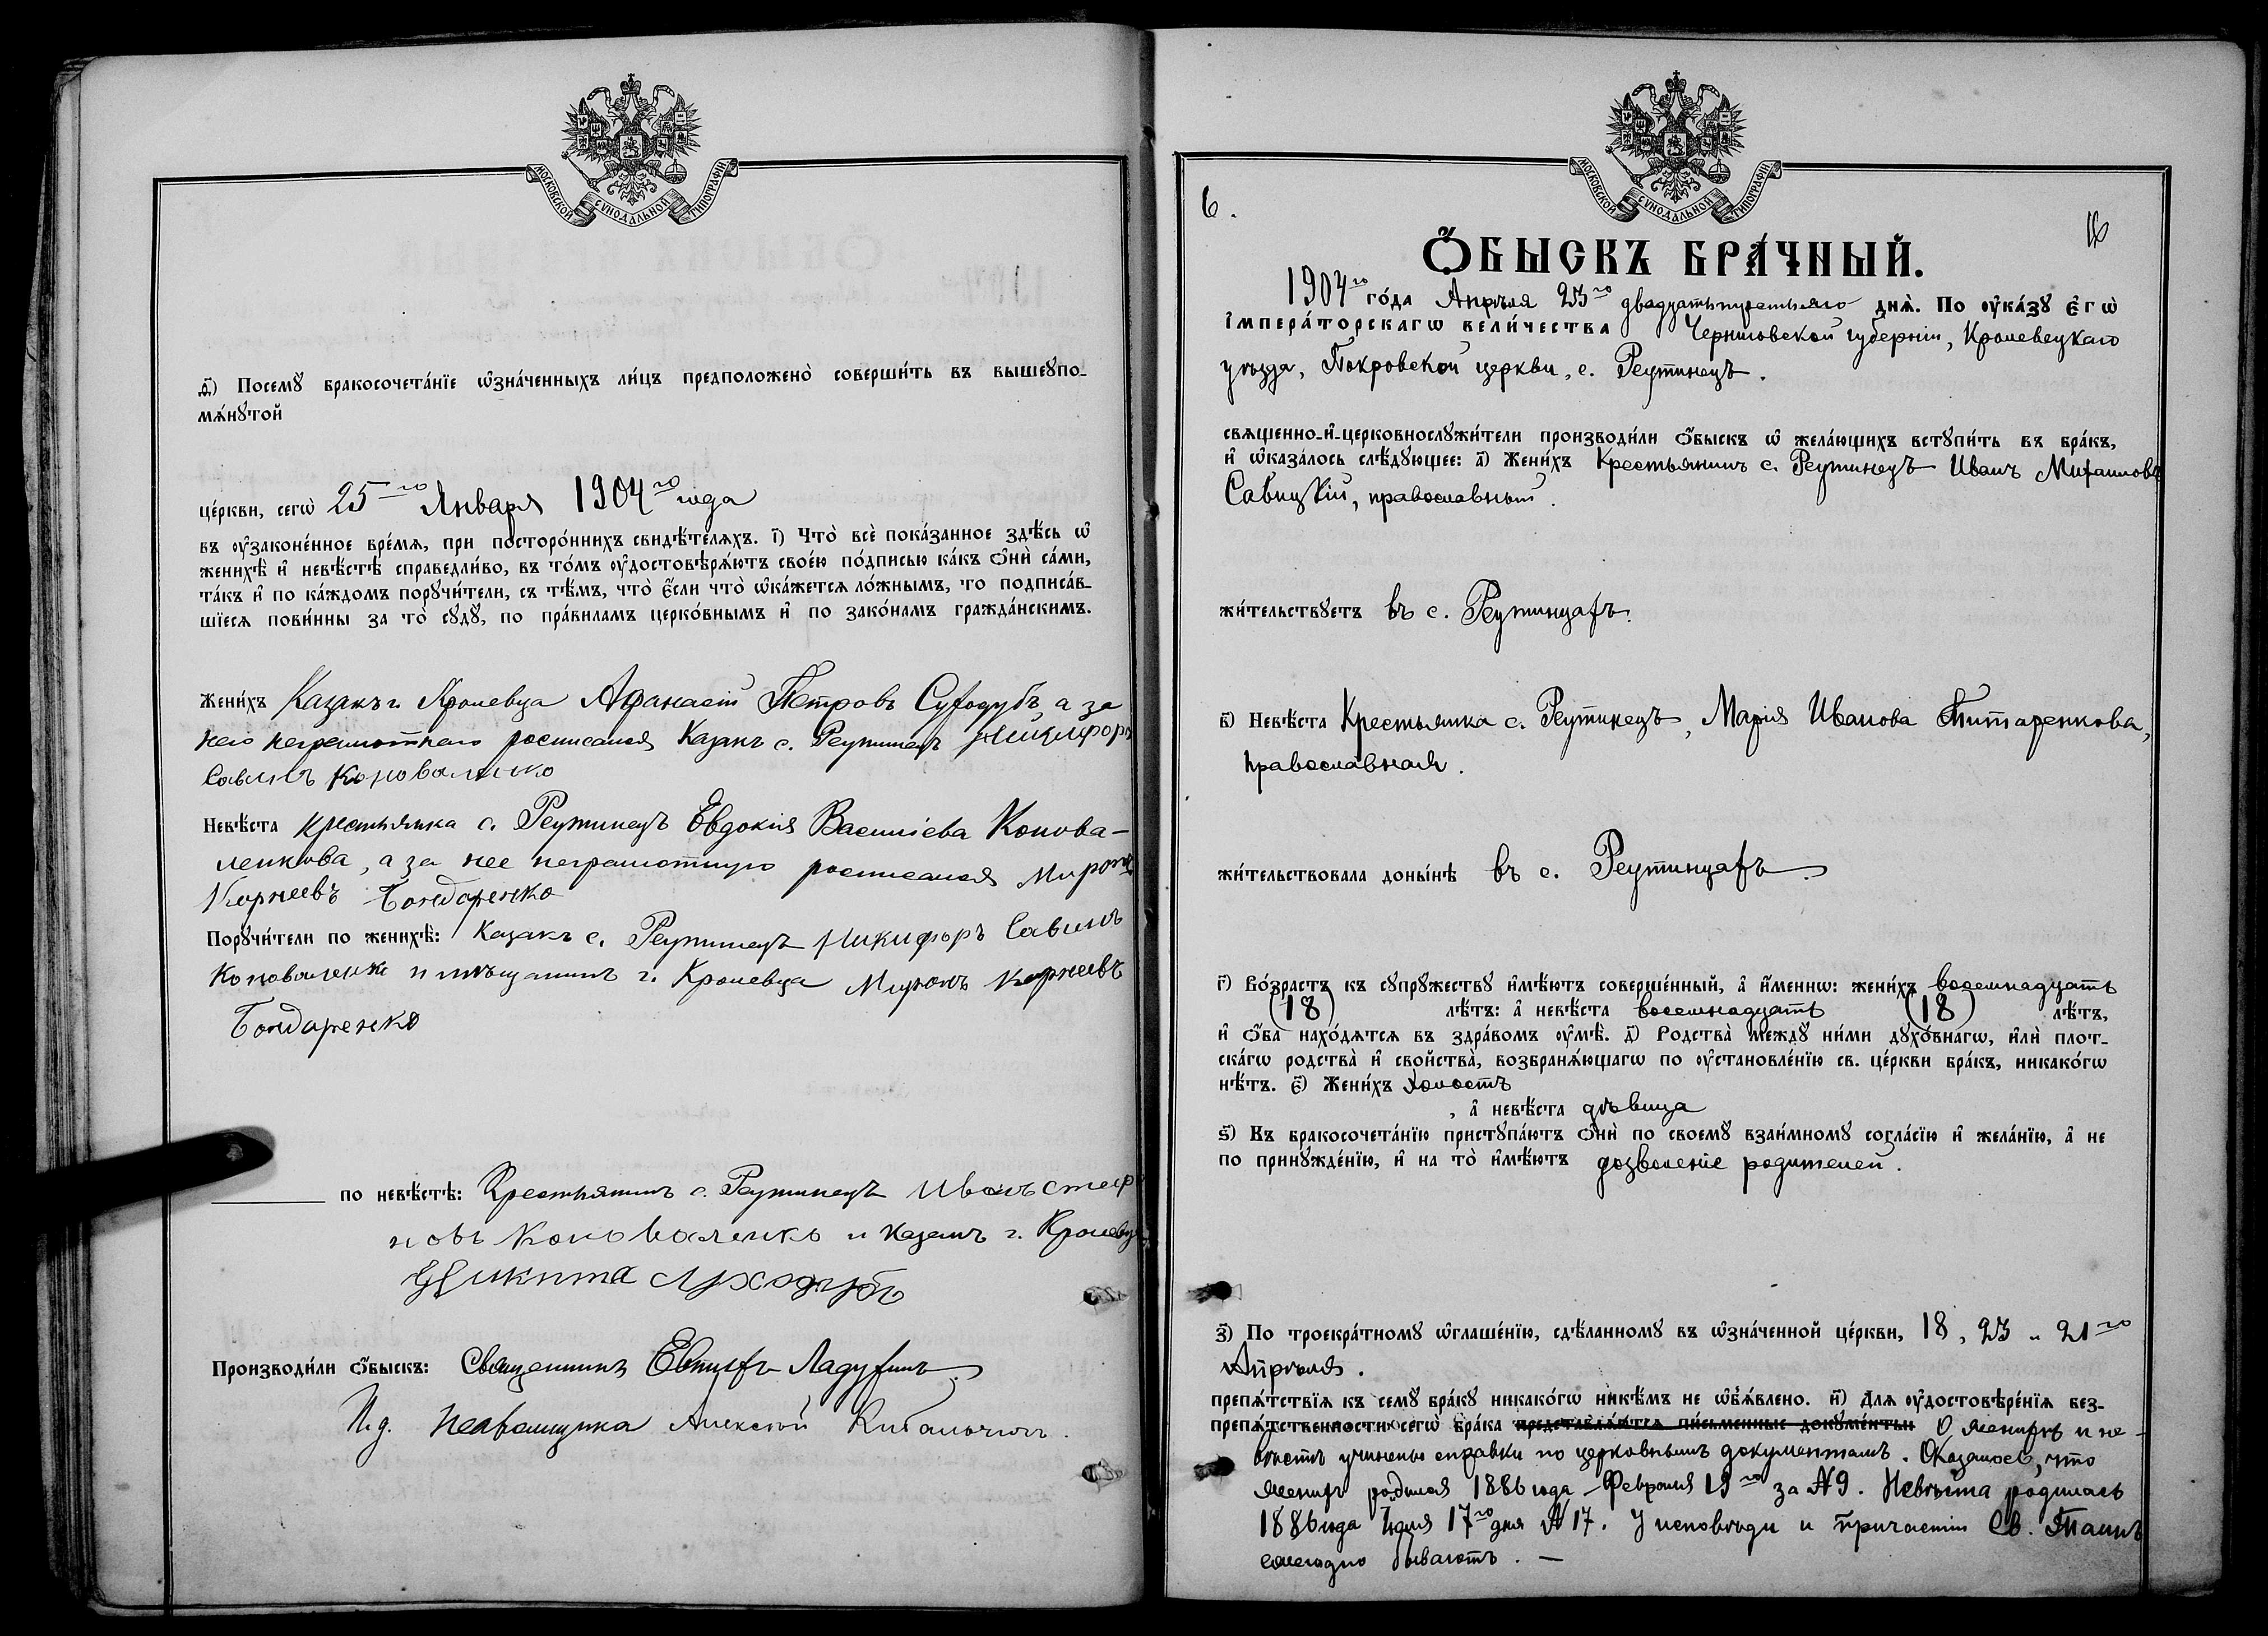 МОСКОВСКОЙ СѴНОДАЛЬНОЙ ТИПОГРАФІИ
д҃) Посемꙋ бракосочета́нїе ѡ҆зна́ченныхъ ли́цъ предположено̀ соверши́ть въ вышеꙋпо-
мѧ́нꙋтой
це́ркви, сегѡ̀ 25го Января 1904го года
въ ᲂу҆законе́нное вре́мѧ, при посторо́ннихъ свидѣ́телѧхъ. і҃) Что̀ всѐ пока́занное здѣ́сь ѡ҆
женихѣ̀ и҆ невѣ́стѣ справедли́во, въ то́мъ ᲂу҆достовѣрѧ́ютъ свое́ю по́дписью ка́къ ѻ҆нѝ са́ми,
та́къ и҆ по ка́ждомъ порꙋчи́тели, съ тѣ́мъ, что̀ є҆́сли что̀ ѡ҆ка́жетсѧ ло́жнымъ, то подписа́в-
шїесѧ пови́нны за то̀ сꙋдꙋ̀, по пра́виламъ церко́внымъ и҆ по зако́намъ гражда́нскимъ.
Жени́хъ Казакъ г. Кролевца Афанасій Петровъ Суходубъ, а за
него неграмотнаго росписался Казакъ с. Реутинецъ Никифоръ
Савинъ Коноваленко
Невѣ́ста крестьянка с. Реутинецъ Евдокія Василіева Конова-
ленкова, а за нее неграмотную росписался Миронъ
Корнеевъ Бондаренко
Порꙋчи́тели по женихѣ̀: Казакъ с. Реутинецъ Никифоръ Савинъ
Коноваленко и мѣщанинъ г. Кролевца Миронъ Корнеевъ
Бондаренко
по невѣ́стѣ: Крестьянинъ с. Реутинецъ Иванъ Стефа
новъ Коноваленко и казакъ г. Кролевца
Никита Суходубъ
Производи́ли ѻ҆́быскъ: Священникъ Евтихъ Ладухинъ
И.д. псаломщика Алексѣй Кибальчичъ.
МОСКОВСКОЙ СѴНОДАЛЬНОЙ ТИПОГРАФІИ
6.
16
Ѻ҆́БЫСКЪ БРА́ЧНЫЙ.
1904го го́да Апрѣля 23го двадцать третьяго днѧ̀. По ᲂу҆ка́зꙋ є҆гѡ̀
і҆мпера́торскагѡ вели́чества Черниговской губерніи, Кролевецкаго
уѣзда, Покровской церкви, с. Реутинецъ.
свѧщенно-и҆-церковнослꙋжи́тели производи́ли ѻ҆́быскъ ѡ҆ жела́ющихъ встꙋпи́ть въ бра́къ,
и҆ ѡ҆каза́лось слѣ́дꙋющее: а҃) Жени́хъ Крестьянинъ с. Реутинецъ Иванъ Михаиловъ
Савицкій, православный.
жи́тельствꙋетъ въ с. Реутинцахъ.
в҃) Невѣ́ста Крестьянка с. Реутинецъ, Марія Иванова Титаренкова,
православная.
жи́тельствовала доны́нѣ въ с. Реутинцахъ.
г҃) Во́зрастъ къ сꙋпрꙋжествꙋ и҆мѣ́ютъ соверше́нный, а҆ и҆́менно: жени́хъ восемнадцать
(18) лѣ́тъ: а҆ невѣ́ста восемнадцать (18) лѣ́тъ,
и҆ ѻ҆́ба нахо́дѧтсѧ въ здра́вомъ ᲂу҆мѣ̀. д҃) Родства̀ междꙋ̀ ни́ми дꙋхо́внагѡ, и҆лѝ плот-
ска́гѡ родства̀ и҆ сво́йства̀, возбранѧ́ющагѡ по ᲂу҆становле́нїю св. це́ркви бра́къ, никако́гѡ
нѣ́тъ. є҃) Жени́хъ холостъ
, а҆ невѣ́ста дѣвица
ѕ҃) Къ бракосочета́нїю пристꙋпа́ютъ ѻ҆нѝ по своемꙋ̀ взаи́мномꙋ согла́сїю и҆ жела́нїю, а҆ не
по принꙋжде́нїю, и҆ на то̀ и҆мѣ́ютъ дозволеніе родителей.
з҃) По троекра́тномꙋ ѡ҆глаше́нїю, сдѣ́ланномꙋ въ ѡ҆зна́ченной це́ркви, 18, 23 и 21го
Апрѣля.
препѧ́тствїѧ къ семꙋ̀ бра́кꙋ никако́гѡ никѣ́мъ не ѡ҆б̾ѧ́влено. и҃) Для ᲂу҆достовѣре́нїѧ без-
препѧ́тственности сегѡ̀ бра́ка представлѧ́ютсѧ пи́сьменные докꙋме́нты О женихѣ и не-
вѣстѣ учинены справки по церковнымъ документамъ. Оказалось, что
женихъ родился 1886 года Февраля 19го за №9. Невѣста родилась
1886 года Іюля 17го дня №17. У исповѣди и причастія Св. Таинъ
ежегодно бываютъ. —